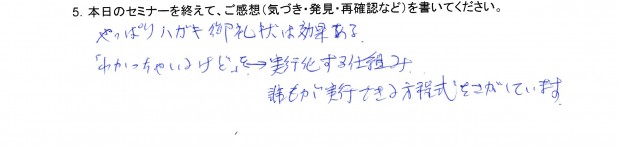 5. 本日のセミナーを終えて、ご感想（気づき・発見・再確認など）を書いてください。
やっぱりハガキ御礼状は効果ある
「わかっちゃいるけど」を↔実行化する仕組み
誰もが実行できる方程式をさがしています